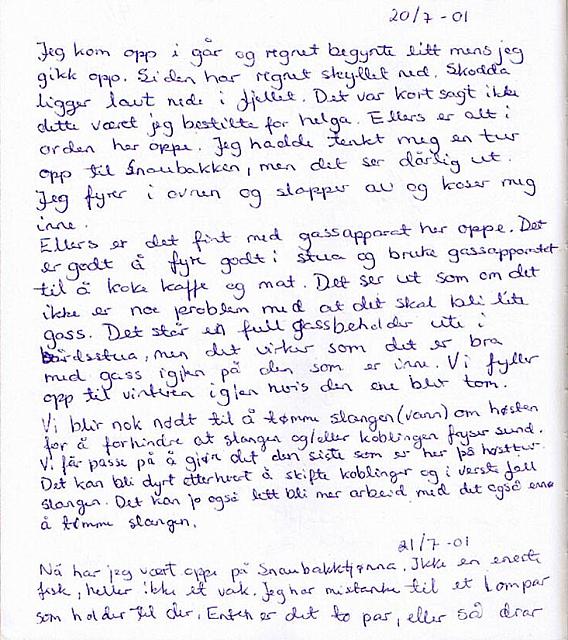 20/7 - 01
Jeg kom opp i går og regnet begynte litt mens jeg
gikk opp. Siden har regnet skyllet ned. Skodda
ligger lavt nede i fjellet. Det var kort sagt ikke
dette været jeg bestilte for helga. Ellers er alt i
orden her oppe. Jeg hadde tenkt meg en tur
opp til Snaubakken, men det ser dårlig ut.
Jeg fyrer i ovnen og slapper av og koser meg
inne.
Ellers er det fint med gassapparat her oppe. Det
er godt å fyre godt i stua og bruke gassapparatet
til å koke kaffe og mat. Det ser ut som om det
ikke er noe problem med at det skal bli lite
gass. Det står en full gassbeholder ute i
bårdsstua, men det virker som det er bra
med gass igjen på den som er inne. Vi fyller
opp til vinteren igjen hvis den ene blir tom.
Vi blir nok nødt til å tømme slangen (vann) om høsten
for å forhindre at slangen og/eller koblingen fryser sund.
Vi får passe på å gjøre det den siste som er her på høsttur.
Det kan bli dyrt etterhvert å skifte koblinger og i verste fall
slangen. Det kan jo også lett bli mer arbeid med det også enn
å tømme slangen.
21/7 - 01
Nå har jeg vært oppe på Snaubakktjønna. Ikke en eneste
fisk, heller ikke et vak. Jeg har mistanke til et lompar
som holder til der. Enten er det to par, eller så drar